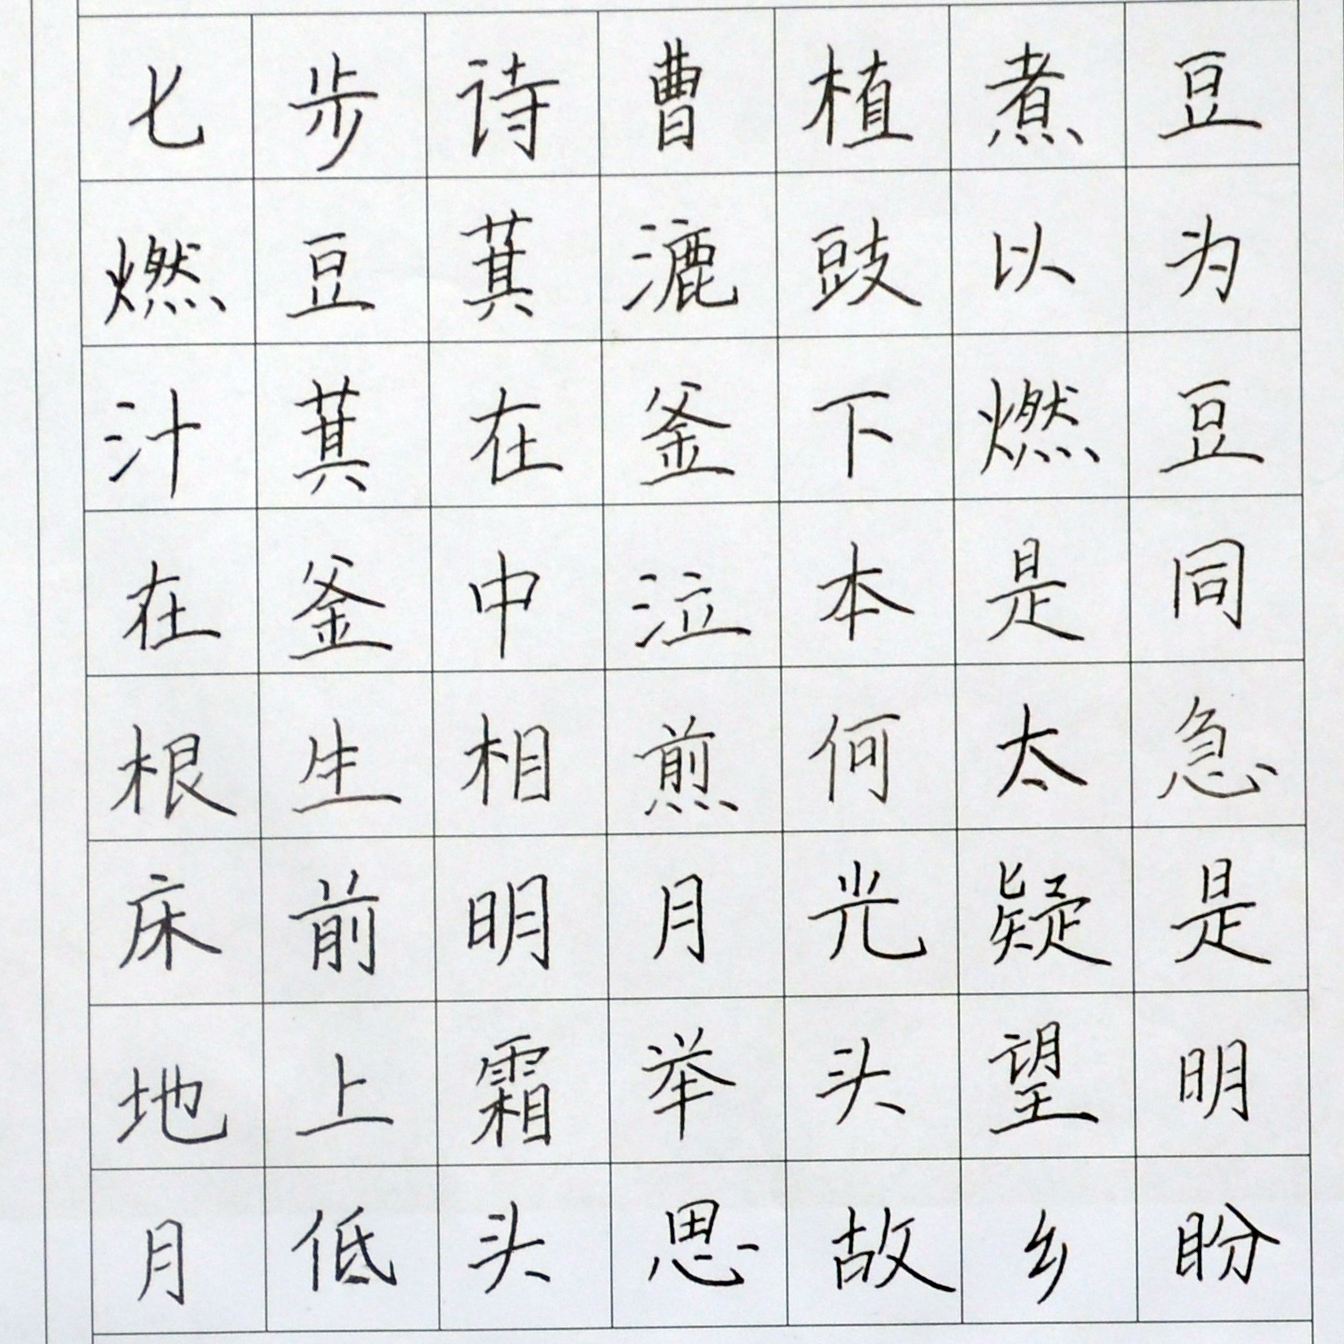 七步诗曹植煮豆
燃豆萁漉豉以为
汁萁在釜下燃豆
在釜中泣本是同
根生相煎何太急
床前明月光疑是
地上霜举头望明
月低头思故乡盼